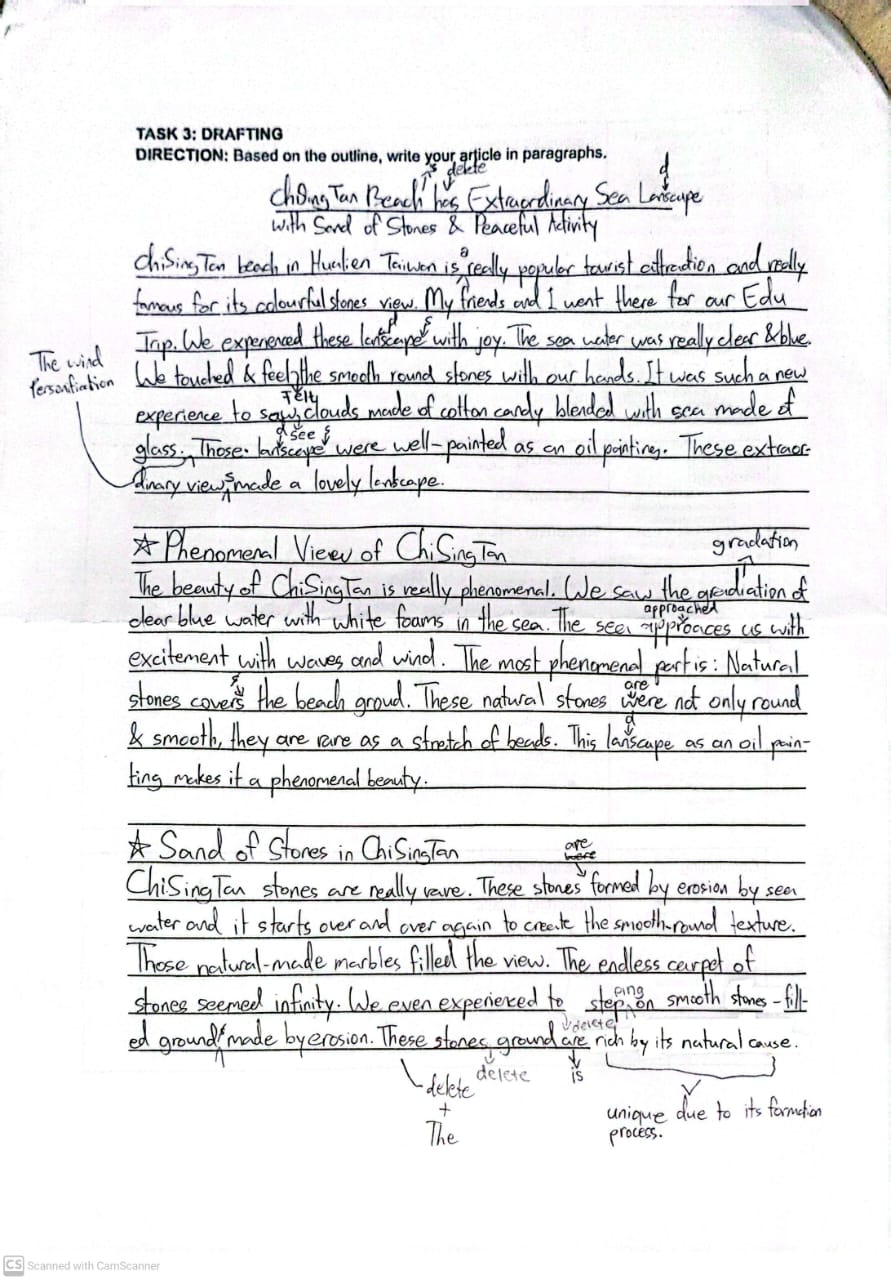 TASK 3: DRAFTING
DIRECTION: Based on the outline, write your article in paragraphs.
's delete d
ChiSingTan Beach has Extraordinary Sea Lanscape
with Sand of Stones & Peaceful Activity
a
ChiSingTan beach in Hualien Taiwan is really popular tourist attraction and really
famous for its colourful stones view. My friends and I went there for our Edu
d s
Trip. We experienced these lanscape with joy. The sea water was really clear & blue.
The wind
Personfiation
We touched & feel the smooth round stones with our hands. It was such a new
Felt
experience to saw clouds made of cotton candy blended with sea made of
d see s
glass. Those lanscape were well-painted as an oil painting. These extraor-
s
dinary view, made a lovely lanscape.
☆ Phenomenal View of ChiSingTan
gradation
The beauty of ChiSingTan is really phenomenal. We saw the gradiation of
approached
clear blue water with white foams in the sea. The sea approaces us with
excitement with waves and wind. The most phenomenal part is: Natural
s are
stones covers the beach groud. These natural stones were not only round
d
& smooth, they are rare as a stretch of beads. This lanscape as an oil pain-
ting makes it a phenomenal beauty.
☆ Sand of Stones in ChiSingTan
are
were
ChiSingTan stones are really rare. These stones formed by erosion by sea
water and it starts over and over again to create the smooth-round texture.
Those natural-made marbles filled the view. The endless carpet of
ping
stones seemed infinity. We even experienced to step on smooth stones-fill-
delete
ed ground made by erosion. These stones ground are rich by its natural cause.
delete
+
The
delete
is
unique due to its formation
process.
CS Scanned with CamScanner